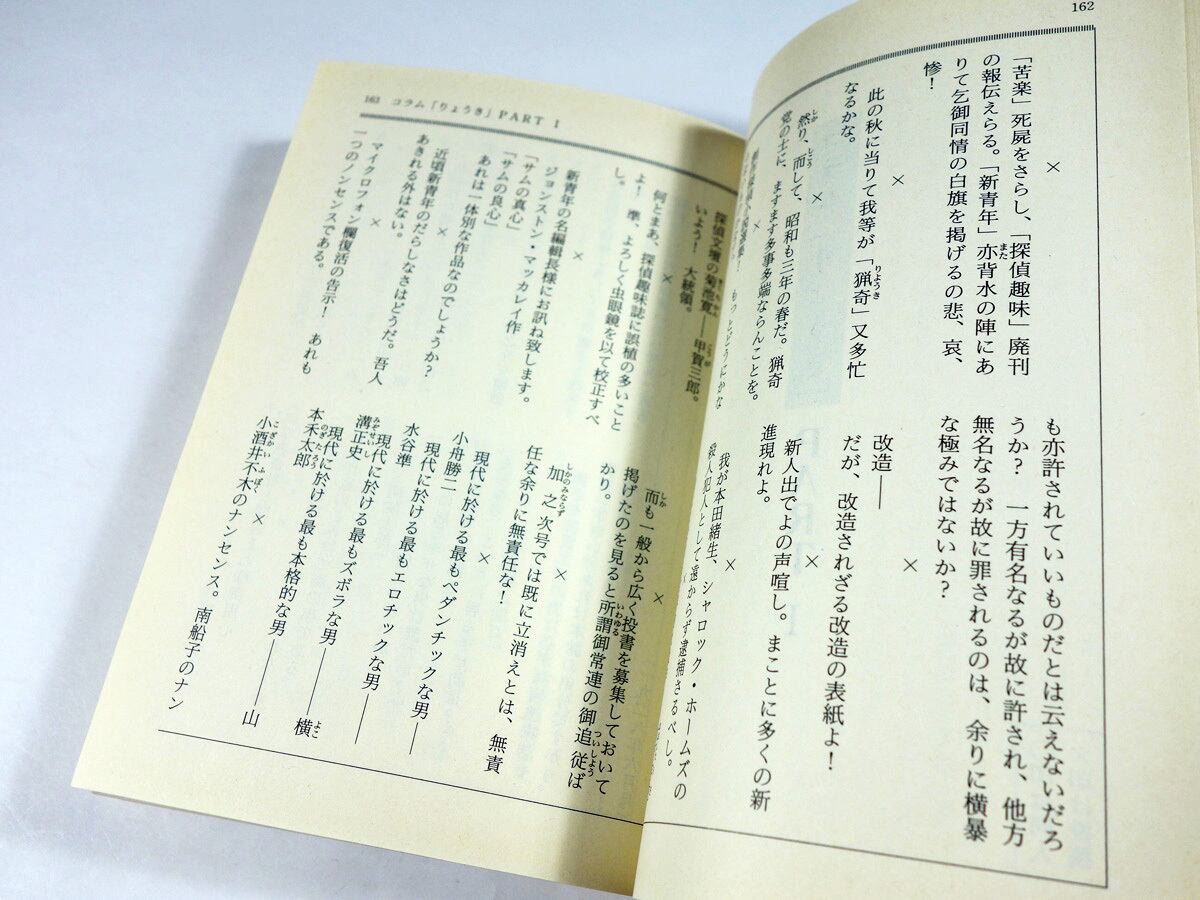 162
×
「苦楽」死屍をさらし、「探偵趣味」廃刊
の報伝えらる。「新青年」亦背水の陣にあ
りて乞御同情の白旗を掲げるの悲、哀、
惨!
×
此の秋に当りて我等が「猟奇」又多忙
なるかな。
×
然り、而して、昭和も三年の春だ。猟奇
党の士に、ますます多事多端ならんことを。
×
も亦許されていいものだとは云えないだろ
うか? 一方有名なるが故に許され、他方
無名なるが故に罪されるのは、余りに横暴
な極みではないか?
×
改造——
だが、改造されざる改造の表紙よ!
×
新人出でよの声喧し。まことに多くの新
進現れよ。
×
我が本田緒生、シャロック・ホームズの
殺人犯人として遠からず逮捕さるべし。
×
163 コラム「りょうき」PART I
探偵文壇の菊池寛——甲賀三郎。
いよう! 大統領。
×
何とまあ、探偵趣味誌に誤植の多いこと
よ! 準、よろしく虫眼鏡を以て校正すべ
し。
×
新青年の名編輯長様にお訊ね致します。
ジョンストン・マッカレイ作
「サムの真心」
「サムの良心」
あれは一体別な作品なのでしょうか?
×
近頃新青年のだらしなさはどうだ。吾人
あきれる外はない。
×
マイクロフォン欄復活の告示! あれも
一つのノンセンスである。
而も一般から広く投書を募集しておいて
掲げたのを見ると所謂御常連の御追従ば
かり。
×
加之次号では既に立消えとは、無責
任な余りに無責任な!
×
現代に於ける最もペダンチックな男——
小舟勝二
現代に於ける最もエロチックな男——
水谷準
現代に於ける最もズボラな男——横
溝正史
現代に於ける最も本格的な男——山
本禾太郎
×
小酒井不木のナンセンス。南船子のナン